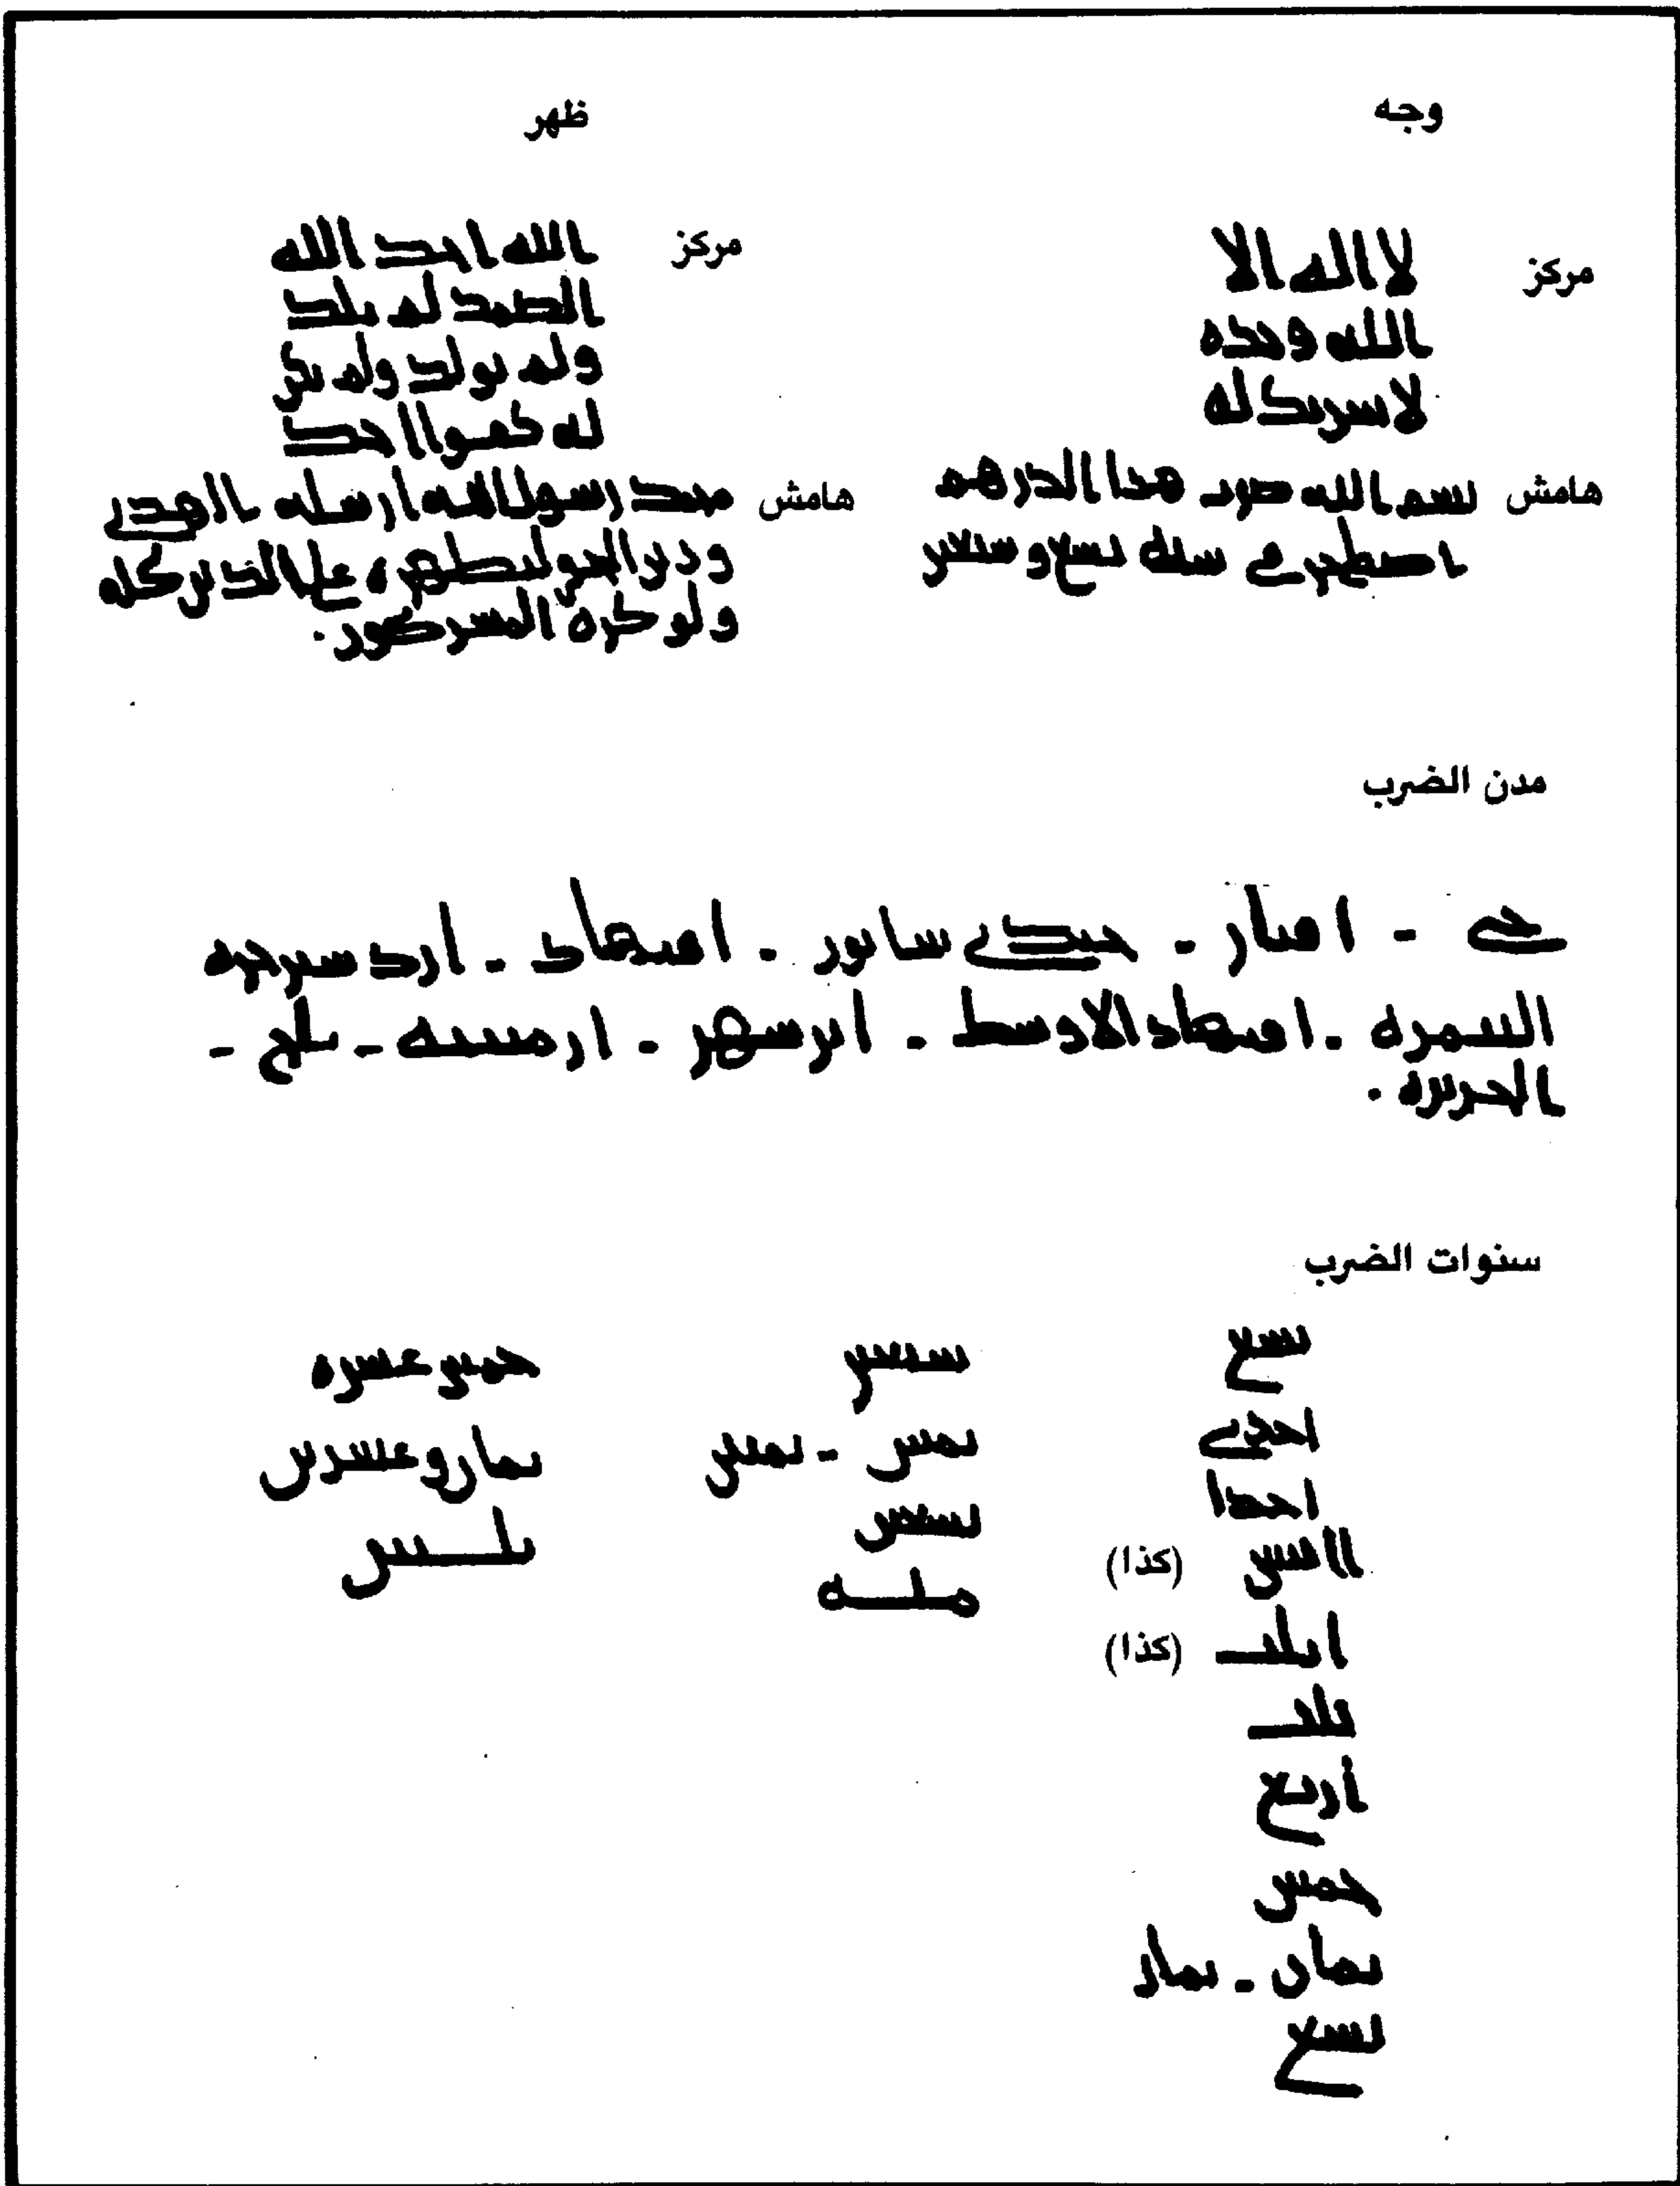 وجه
مركز لا اله الا
الله وحده
لا سريك له
هامش بسم الله صرب هدا الدرهم
باصطخر في سنة تسع و سبعين
ظهر
مركز الله احد الله
الصمد لم يلد
ولم يولد ولم يكن
له كفوا احد
هامش محمد رسول الله ارسله بالهدى
و دين الحق ليظهره على الدين كله
ولو كره المشركون.
مدن الضرب
في - انبار - جندي سابور - اصبهان - اردشير خره
التيمره - ابرشهر - ارمينيه - بلخ -
الجزيره .
سنوات الضرب
تسع
احدى
احدا
(كذا)
(كذا)
ثلث
أربع
خمس
ثمان - ثمان
تسع
ستين
تسعين
مئه
خمس عشره
ثمان وعشرين
ثلثين